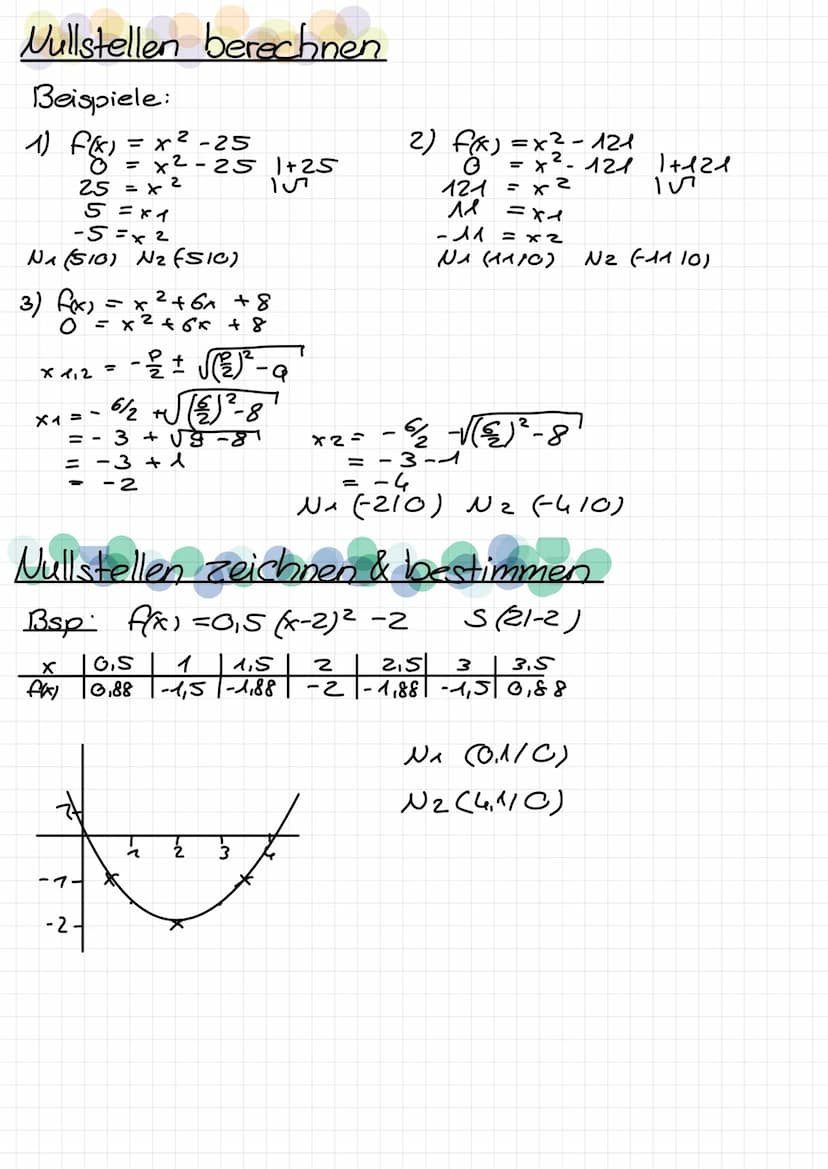 Nullstellen berechnen
Beispiele:
1) f(x) = x² - 25
0 = x² - 25 |+25
25 = x² |√
5 = x1
-5 = x2
N1 (5|0) N2 (-5|0)
2) f(x) = x² - 121
0 = x² - 121 |+121
121 = x² |√
11 = x1
-11 = x2
N1 (11|0) N2 (-11|0)
3) f(x) = x² + 6x + 8
0 = x² + 6x + 8
x1,2 = -p/2 ± √((p/2)² - q)
x1 = - 6/2 + √((6/2)² - 8)
= - 3 + √(9 - 8)
= -3 + 1
= -2
x2 = - 6/2 - √((6/2)² - 8)
= - 3 - 1
= -4
N1 (-2|0) N2 (-4|0)
Nullstellen zeichnen & bestimmen
Bsp: f(x) = 0,5 (x-2)² - 2 S (2|-2)
x | 0,5 | 1 | 1,5 | 2 | 2,5 | 3 | 3,5
f(x) | 0,88 | -1,5 | -1,88 | -2 | -1,88 | -1,5 | 0,88
N1 (0,1/0)
N2 (4,1/0)
1 2 3 4
-1
-2